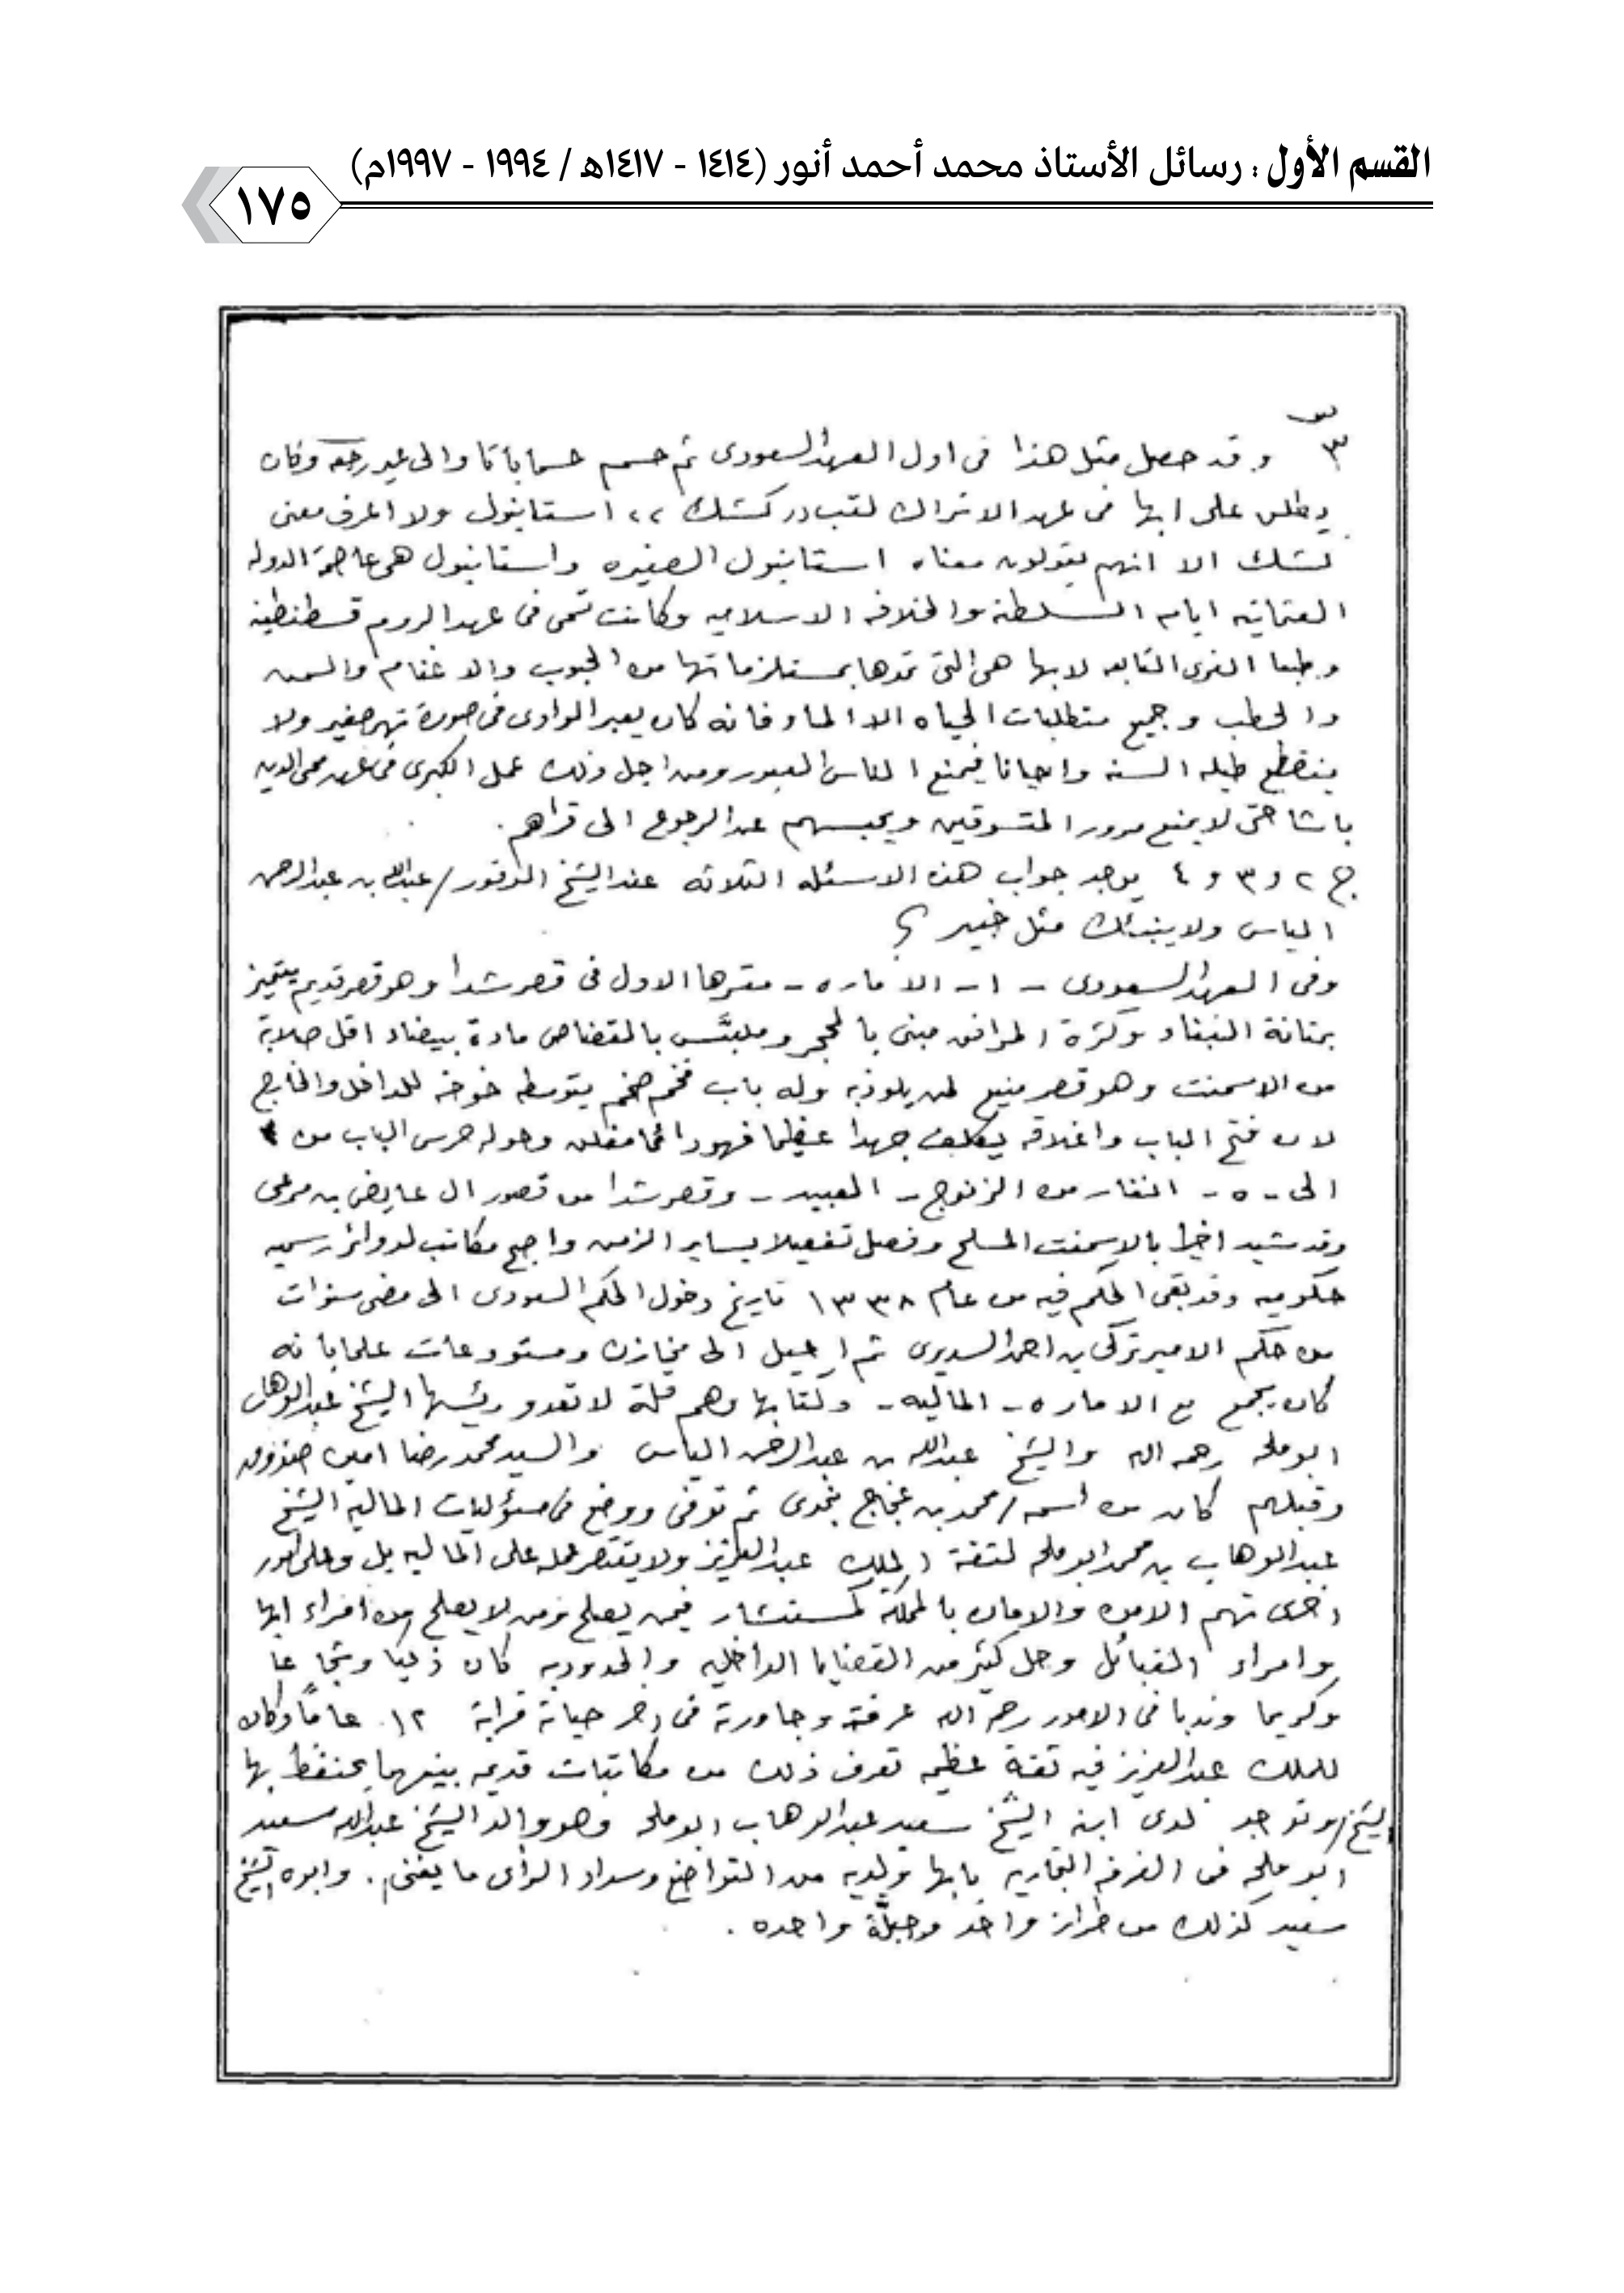 القسم الأول : رسائل الأستاذ محمد أحمد أنور (١٤١٤ - ١٤١٧هـ / ١٩٩٤ - ١٩٩٧م)
١٧٥
ص
٣ وقد حصل مثل هذا فى اول العهد السعودى ثم حسم حسما باتا والى غير رجعه وكان
يطلق على ابها فى عهد الاتراك لقب ,, كشك ,, استانبول ولا اعرف معنى
كشك الا انهم يقولون معناه استانبول الصغيره واستانبول هى عاصمة الدوله
العثمانيه ايام السلطنه والخلافه الاسلاميه وكانت تسمى فى عهد الروم قسطنطينيه
وطبعا القرى التابعه لابها هى التى تمدها بمستلزماتها من الحبوب والاغنام والسمن
والحطب وجميع متطلبات الحياه الا الماء فانه كان يعبر الوادى فى صورة نهر صغير ولا
ينقطع طيله السنه واحيانا فيمنع الناس العبور ومن اجل ذلك عمل الكبرى فى عهد محى الدين
باشا حتى لا يمنع مرور المتسوقين ويحبسهم عن الرجوع الى قراهم .
ج ٢ و ٣ و ٤ يوجد جواب هذه الاسئله الثلاثه عند الشيخ الوقور / عبدالله بن عبدالرحمن
الياس ولا ينبئك مثل خبير ؟
وفى العهد السعودى - ١ - الاماره - مقرها الاول فى قصر شدا وهو قصر قديم يتميز
بمتانة البناء وكثرة المرافق مبنى بالحجر وملبَّس بالقضاض مادة بيضاء اقل صلابة
من الاسمنت وهو قصر منيع لمن يلوذ به وله باب فخم ضخم يتوسطه خوخه للداخل والخارج
لان فتح الباب واغلاقه يكلف جهدا عظيما فهو دائما مغلق وحوله حرس الباب من ٤
الى - ٥ - انفار من الزنوج - العبيد - وقصر شدا من قصور ال عايض بن مرعى
وقد شيد اخيرا بالاسمنت المسلح وفصل تفصيلا يساير الزمن واصبح مكاتب لدوائر رسميه
حكوميه وقد بقى الحكم فيه من عام ١٣٣٨ تاريخ دخول الحكم السعودى الى مضى سنوات
من حكم الامير تركى بن احمد السديرى ثم احيل الى مخازن ومستودعات علما بانه
كان يجمع مع الاماره - الماليه - وكتابها وهم قلة لا تعدو رئيسها الشيخ عبدالوهاب
ابو ملحه رحمه الله والشيخ عبدالله بن عبدالرحمن الياس والسيد محمد رضا امين صندوق
وقبلهم كان من اسمه / محمد بن عجاج نجدى ثم توفى ووضع فى مسؤليات المالية الشيخ
عبدالوهاب بن محمد ابو ملحه لثقة الملك عبدالعزيز ولا يقتصر عمله على الماليه بل وعلى امور
اخرى تهم الامن والامان بالمملكة كمستشار فيمن يصلح ومن لا يصلح من امراء ابها
وامراء القبائل وحل كثير من القضايا الداخليه والحدوديه كان ذكيا وشجاعا
وكريما وندبا فى الامور رحمه الله عرفته وجاورته فى اخر حياته قرابة ١٢ عامًا وكان
للملك عبدالعزيز فيه ثقة عظيمه تعرف ذلك من مكاتبات قديمه بينهما يحتفظ بها
الشيخ / وتوجد لدى ابنه الشيخ سعيد عبدالوهاب ابو ملحه وهو والد الشيخ عبدالله سعيد
ابو ملحه فى الغرفه التجاريه بابها ولديه من التواضع وسداد الرأى ما يغنى . وابوه الشيخ
سعيد كذلك من طراز واحد وجبلَّة واحده .